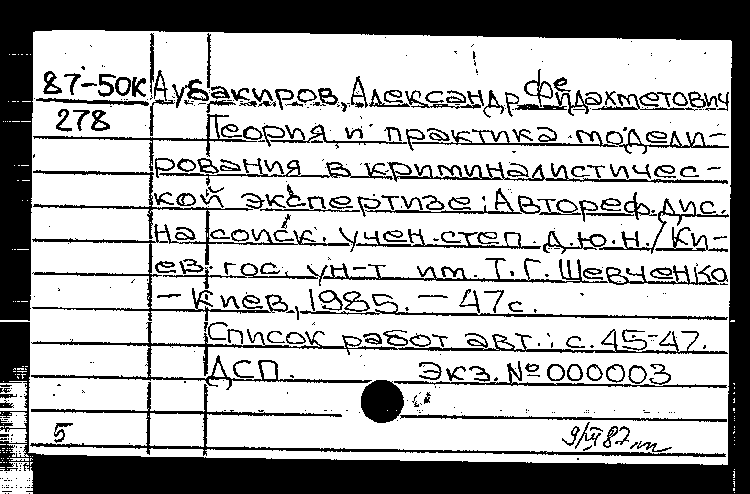 87-50К Аубакиров, Александр Фидахметович
278 Теория и практика модели-
рования в криминалистичес-
кой экспертизе: Автореф. дис.
на соиск. учен. степ. д.ю.н. / Ки-
ев. гос. ун-т им. Т. Г. Шевченко
— Киев, 1985. — 47 с.
Список работ авт.: с. 45-47.
ДСП. Экз. № 000003
5